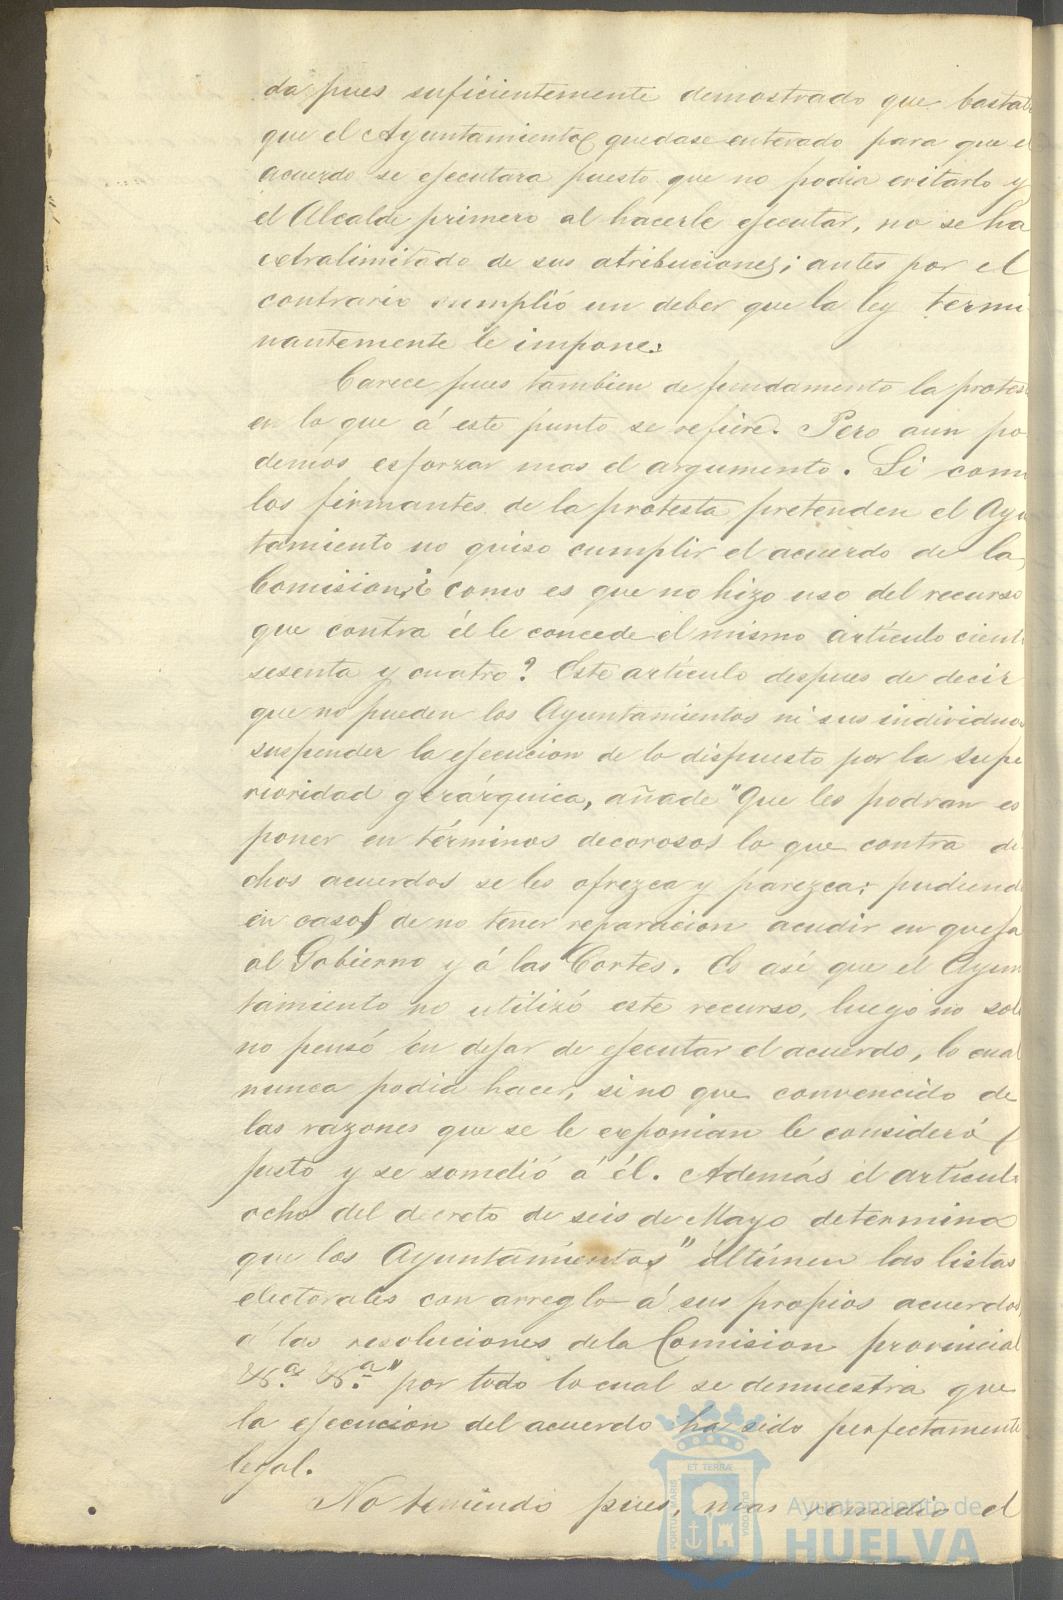 da pues suficientemente demostrado que basta
que el Ayuntamiento quedase enterado para que e
acuerdo se ejecutara puesto que no podia evitarlo y
el Alcalde primero al hacerle ejecutar, no se ha
extralimitado de sus atribuciones; antes por el
contrario cumplió un deber que la ley termi
nantemente le impone.
Carece pues tambien de fundamento la protes
en lo que á este punto se refiere. Pero aun po
demos esforzar mas el argumento. Si com
los firmantes de la protesta pretenden el Ayu
tamiento no quiso cumplir el acuerdo de la
Comision, ¿ como es que no hizo uso del recurso
que contra él le concede el mismo artículo cient
sesenta y cuatro? Este artículo despues de decir
que no pueden los Ayuntamientos ni sus individuos
suspender la ejecucion de lo dispuesto por la supe
rioridad gerárquica, añade "Que les podran es
poner en términos decorosos lo que contra di
chos acuerdos se les ofrezca y parezca: pudiend
en casos de no tener reparacion acudir en queja
al Gobierno y á las Cortes. Es asi que el Ayun
tamiento no utilizó este recurso, luego no sol
no pensó en dejar de ejecutar el acuerdo, lo cual
nunca podia hacer, sino que convencido de
las razones que se le exponian le consideró
justo y se sometió á él. Además el artícul
ocho del decreto de seis de Mayo determina
que los Ayuntamientos "últimen las listas
electorales con arreglo á sus propios acuerdos
a las resoluciones de la Comision provincial
&.ª &.ª" por todo lo cual se demuestra que
la ejecucion del acuerdo ha sido perfectamente
legal.
No teniendo pues, mas remedio el
ET TERRÆ
PORTUS MARIS
CUSTODIA
Ayuntamiento de
HUELVA